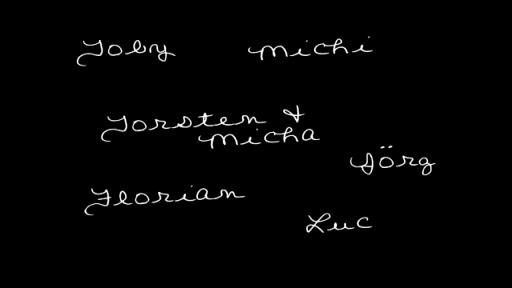 Toby
Michi
Torsten &
Micha
Jörg
Florian
Luc